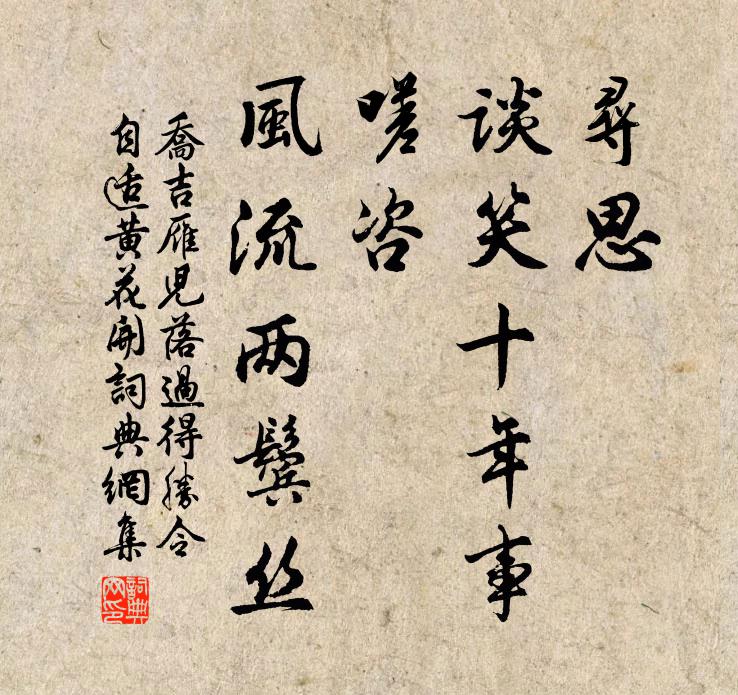 尋思
談笑十年事
嗟咨
風流兩鬢丝
喬吉雁児落過得勝令
自适黄花開詞典網集
詞典
网印